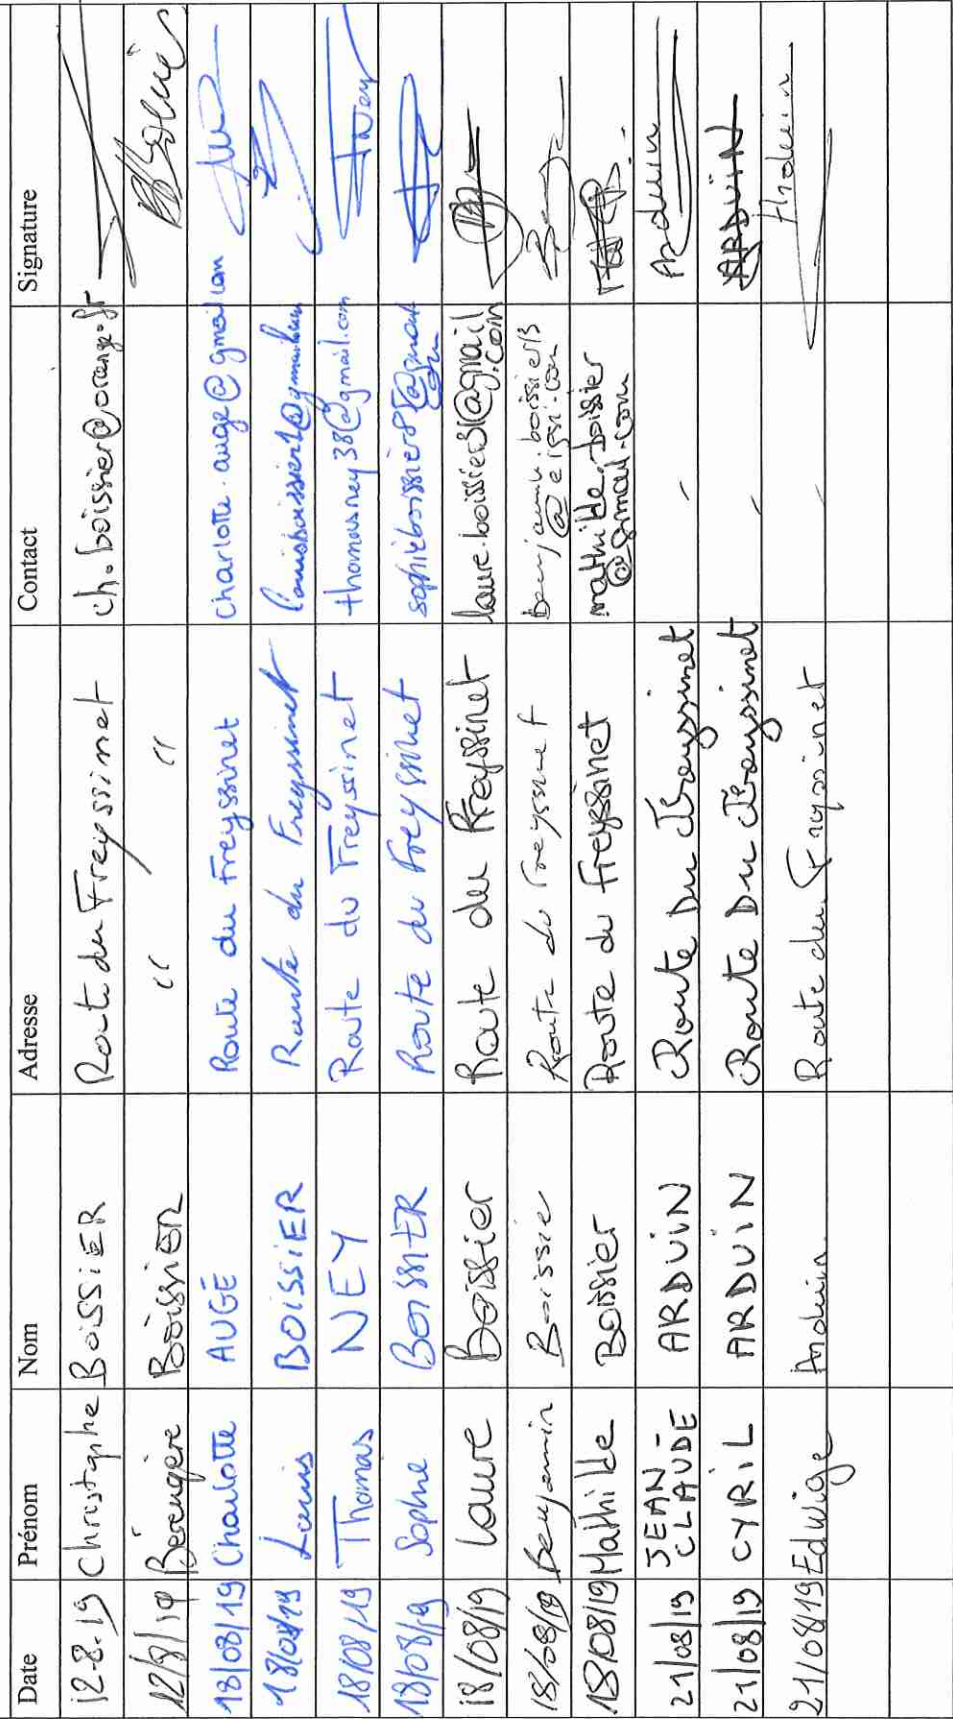 Date Prénom Nom Adresse Contact Signature
12-8-19 Christophe BOISSIER Route du Freyssinet ch.boissier@orange.fr
12/8/19 Bérengère Boissier " "
18/08/19 Charlotte AUGÉ Route du Freyssinet charlotte.auge@gmail.com
18/08/19 Louis BOISSIER Route du Freyssinet
18/08/19 Thomas NEY Route du Freyssinet thomasney38@gmail.com
18/08/19 Sophie BOISSIER Route du Freyssinet
18/08/19 Laure Boissier Route du Freyssinet laure.boissier31@gmail
.com
18/08/19 Benjamin Boissier Route du Freyssinet benjamin.boissier13
18/08/19 Mathilde Boissier Route du Freyssinet mathilde.boissier
@gmail.com
21/08/19 JEAN-
CLAUDE ARDUIN Route Du Freyssinet - Arduin
21/08/19 CYRIL ARDUIN Route Du Freyssinet - ARDUIN
21/08/19 Edwige Arduin Route du Freyssinet -